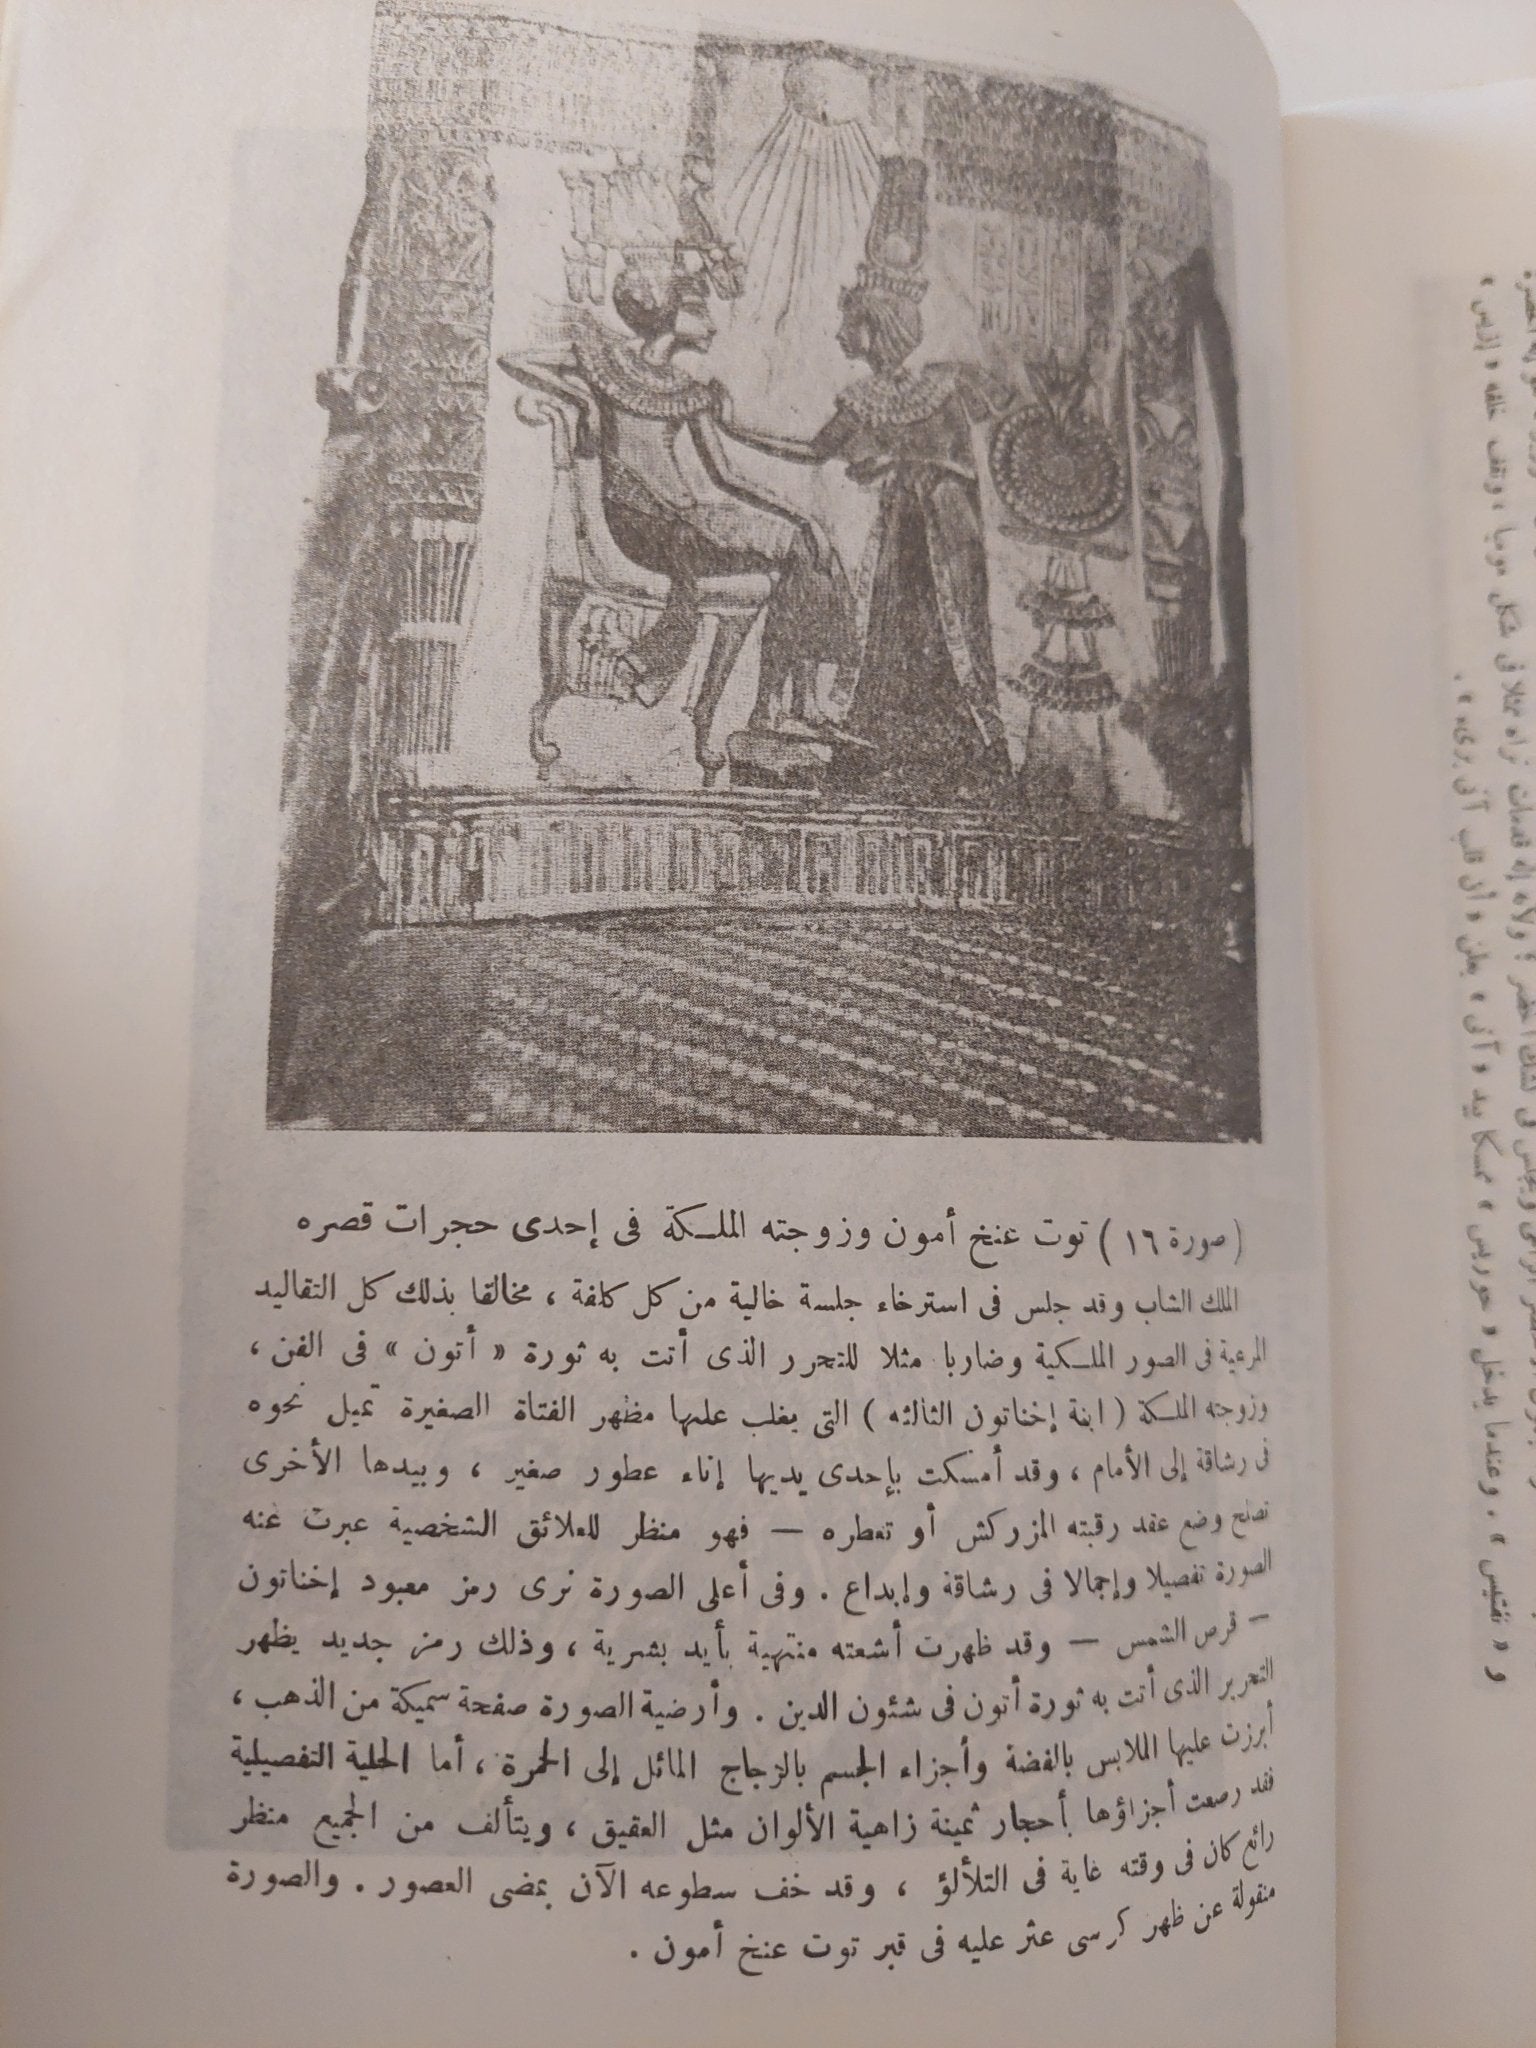 (صورة ١٦) توت عنخ أمون وزوجته الملكة فى إحدى حجرات قصره
الملك الشاب وقد جلس فى استرخاء جلسة خالية من كل كلفة ، مخالفا بذلك كل التقاليد
المرعية فى الصور الملكية وضاربا مثلا للتحرر الذى أتت به ثورة « أتون » فى الفن ،
وزوجته الملكة ( ابنة إخناتون الثالثه ) التى يغلب عليها مظهر الفتاة الصغيرة تميل نحوه
فى رشاقة إلى الأمام ، وقد أمسكت بإحدى يديها إناء عطور صغير ، وبيدها الأخرى
تصلح وضع عقد رقبته المزركش أو تعطره — فهو منظر للعلائق الشخصية عبرت عنه
الصورة تفصيلا وإجمالا فى رشاقة وإبداع . وفى أعلى الصورة نرى رمز معبود إخناتون
— قرص الشمس — وقد ظهرت أشعته منتهية بأيد بشرية ، وذلك رمز جديد يظهر
التحرير الذى أتت به ثورة أتون فى شئون الدين . وأرضية الصورة صفحة سميكة من الذهب ،
أبرزت عليها الملابس بالفضة وأجزاء الجسم بالزجاج المائل إلى الحمرة ، أما الحلية التفصيلية
فقد رصعت أجزاؤها بأحجار ثمينة زاهية الألوان مثل العقيق ، ويتألف من الجميع منظر
رائع كان فى وقته غاية فى التلألؤ ، وقد خف سطوعه الآن بمضى العصور . والصورة
منقولة عن ظهر كرسى عثر عليه فى قبر توت عنخ أمون .
و « نفتيس » . وعندما يدخل « حوريس » ممسكا بيد « آنى » يعلن « أن قلب آنى برىء » .